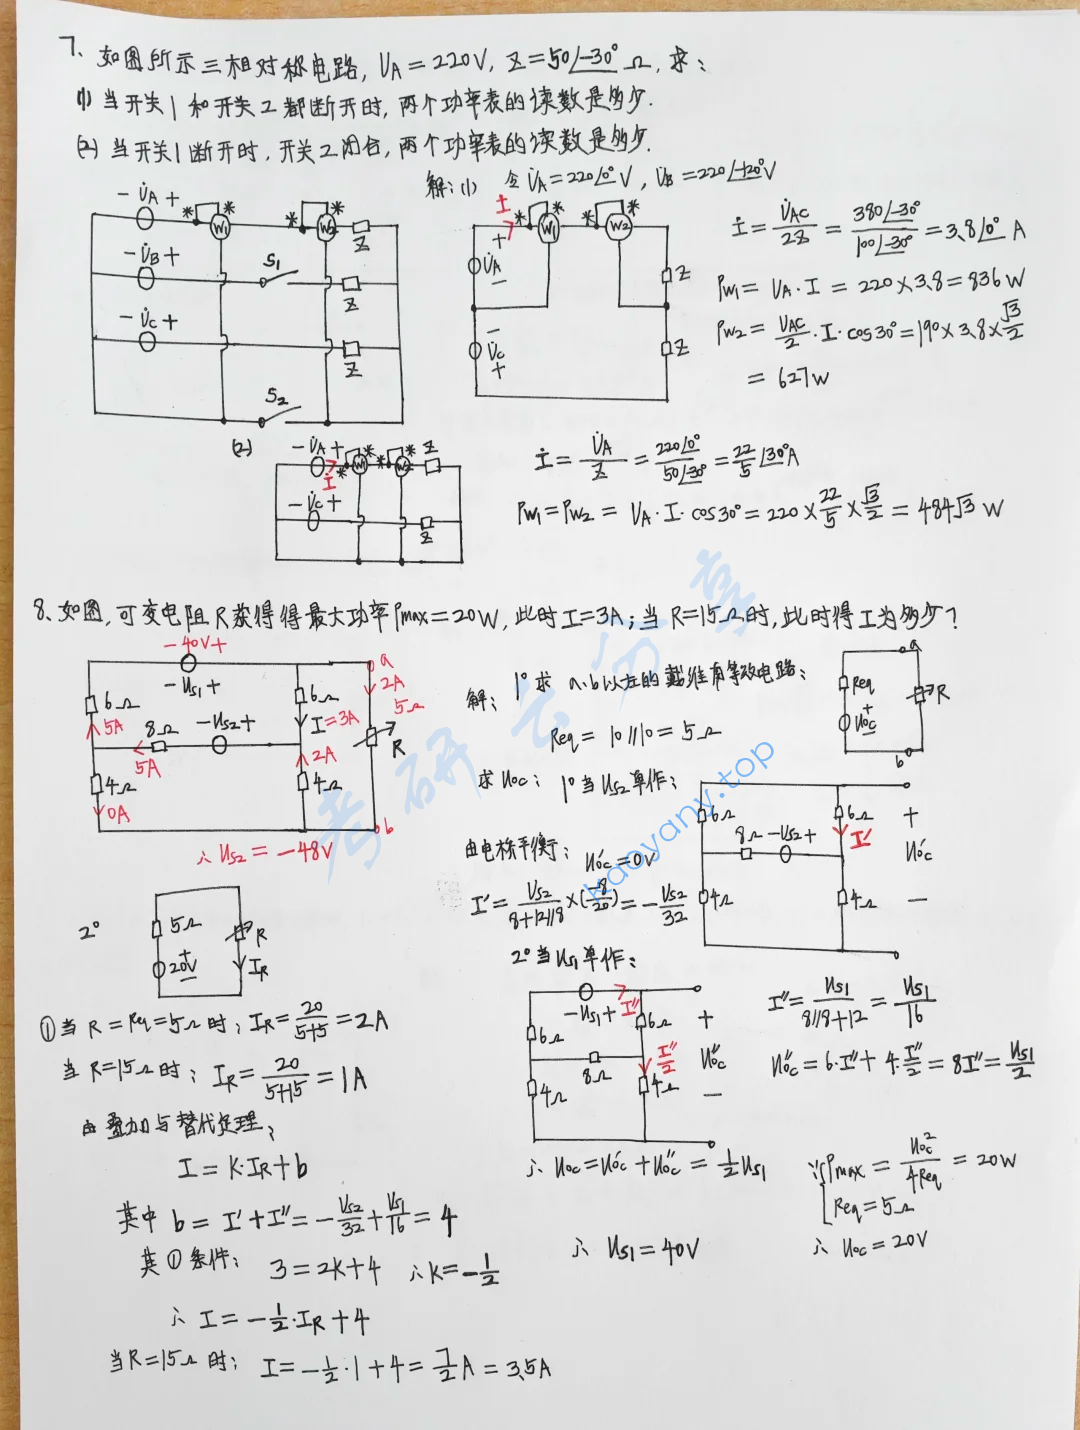 7、如图所示三相对称电路, U_A = 220V, Z = 50∠-30° Ω, 求:
(1) 当开关1和开关2都断开时, 两个功率表的读数是多少.
(2) 当开关1断开时, 开关2闭合, 两个功率表的读数是多少.
解:(1) 令 U̇_A = 220∠0° V, U̇_B = 220∠-120° V
- U̇_A +
* * W1 * * W2 Z
- U̇_B + S1 Z
- U̇_C + Z
S2
İ * * W1 * * W2
+ U̇_A - Z
- U̇_C + Z
İ = U̇_AC / 2Z = 380∠-30° / 100∠-30° = 3.8∠0° A
P_W1 = U_A · I = 220 × 3.8 = 836 W
P_W2 = U_AC / 2 · I · cos30° = 190 × 3.8 × √3/2
= 627 W
(2) - U̇_A + İ * * W1 * * W2 Z
- U̇_C + Z
İ = U̇_A / Z = 220∠0° / 50∠-30° = 22/5 ∠30° A
P_W1 = P_W2 = U_A · I · cos30° = 220 × 22/5 × √3/2 = 484√3 W
8、如图, 可变电阻R获得得最大功率 Pmax = 20W, 此时 I = 3A; 当 R = 15Ω时, 此时得I为多少?
- 40V +
- U_S1 + a
6Ω 5A 8Ω - U_S2 + 6Ω I = 3A 2A 5Ω R
5A 2A
4Ω 0A 4Ω b
∴ U_S2 = -48V
解: 1° 求 a、b以左的戴维南等效电路:
Req = 10//10 = 5Ω
a Req + Uoc - R b
求 Uoc: 1° 当 U_S2 单作:
由电桥平衡: U'oc = 0V
I' = U_S2 / (8+12//8) × (-8/20) = -U_S2/32
6Ω 6Ω + I'
8Ω - U_S2 + U'oc
4Ω 4Ω -
2° 当 U_S1 单作:
- U_S1 + I'' 6Ω 6Ω +
8Ω I''/2 U''oc
4Ω 4Ω -
I'' = U_S1 / (8//8+12) = U_S1/16
U''oc = 6·I'' + 4·I''/2 = 8I'' = U_S1/2
∴ Uoc = U'oc + U''oc = 1/2 U_S1
∵ { Pmax = Uoc² / 4Req = 20W
Req = 5Ω
∴ Uoc = 20V
∴ U_S1 = 40V
2° 5Ω + 20V - R I_R
① 当 R = Req = 5Ω 时; I_R = 20/(5+5) = 2A
当 R = 15Ω 时; I_R = 20/(5+15) = 1A
由叠加与替代定理;
I = K·I_R + b
其中 b = I' + I'' = -U_S2/32 + U_S1/16 = 4
其①条件: 3 = 2K+4 ∴ K = -1/2
∴ I = -1/2·I_R + 4
当 R = 15Ω 时; I = -1/2·1 + 4 = 7/2 A = 3.5A
考研云分享
kaoyany.top